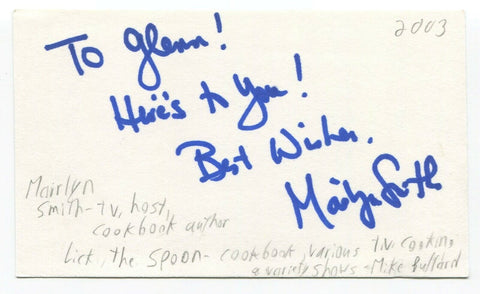 2003
To Glenn!
Here's to You!
Best Wishes,
Mairlyn Smith
Mairlyn
Smith - tv, host,
cookbook author
Lick, the Spoon - cookbook, various t.v. cooking
& variety shows - Mike Bullard